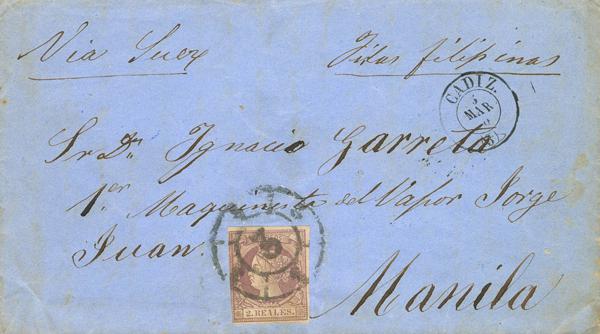 Via Suez Islas filipinas
CADIZ.
5
MAR
Sr Dn Ignacio Garreta
1.er Maquinista del Vapor Jorge
Juan.
2. REALES.
Manila